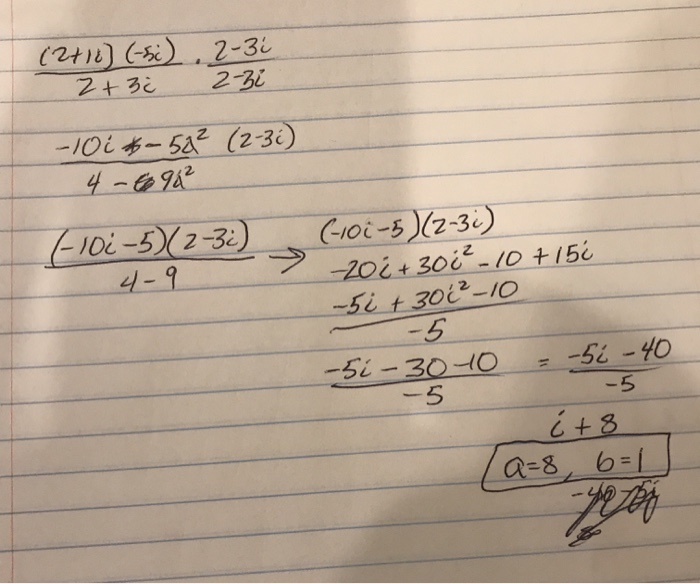 (2+1i)(-5i) / 2+3i · 2-3i / 2-3i
-10i - 5i² (2-3i) / 4 - 9i²
(-10i-5)(2-3i) / 4-9 → (-10i-5)(2-3i)
-20i + 30i² - 10 + 15i
-5i + 30i² - 10 / -5
-5i - 30 - 10 / -5 = -5i - 40 / -5
i + 8
a=8, b=1